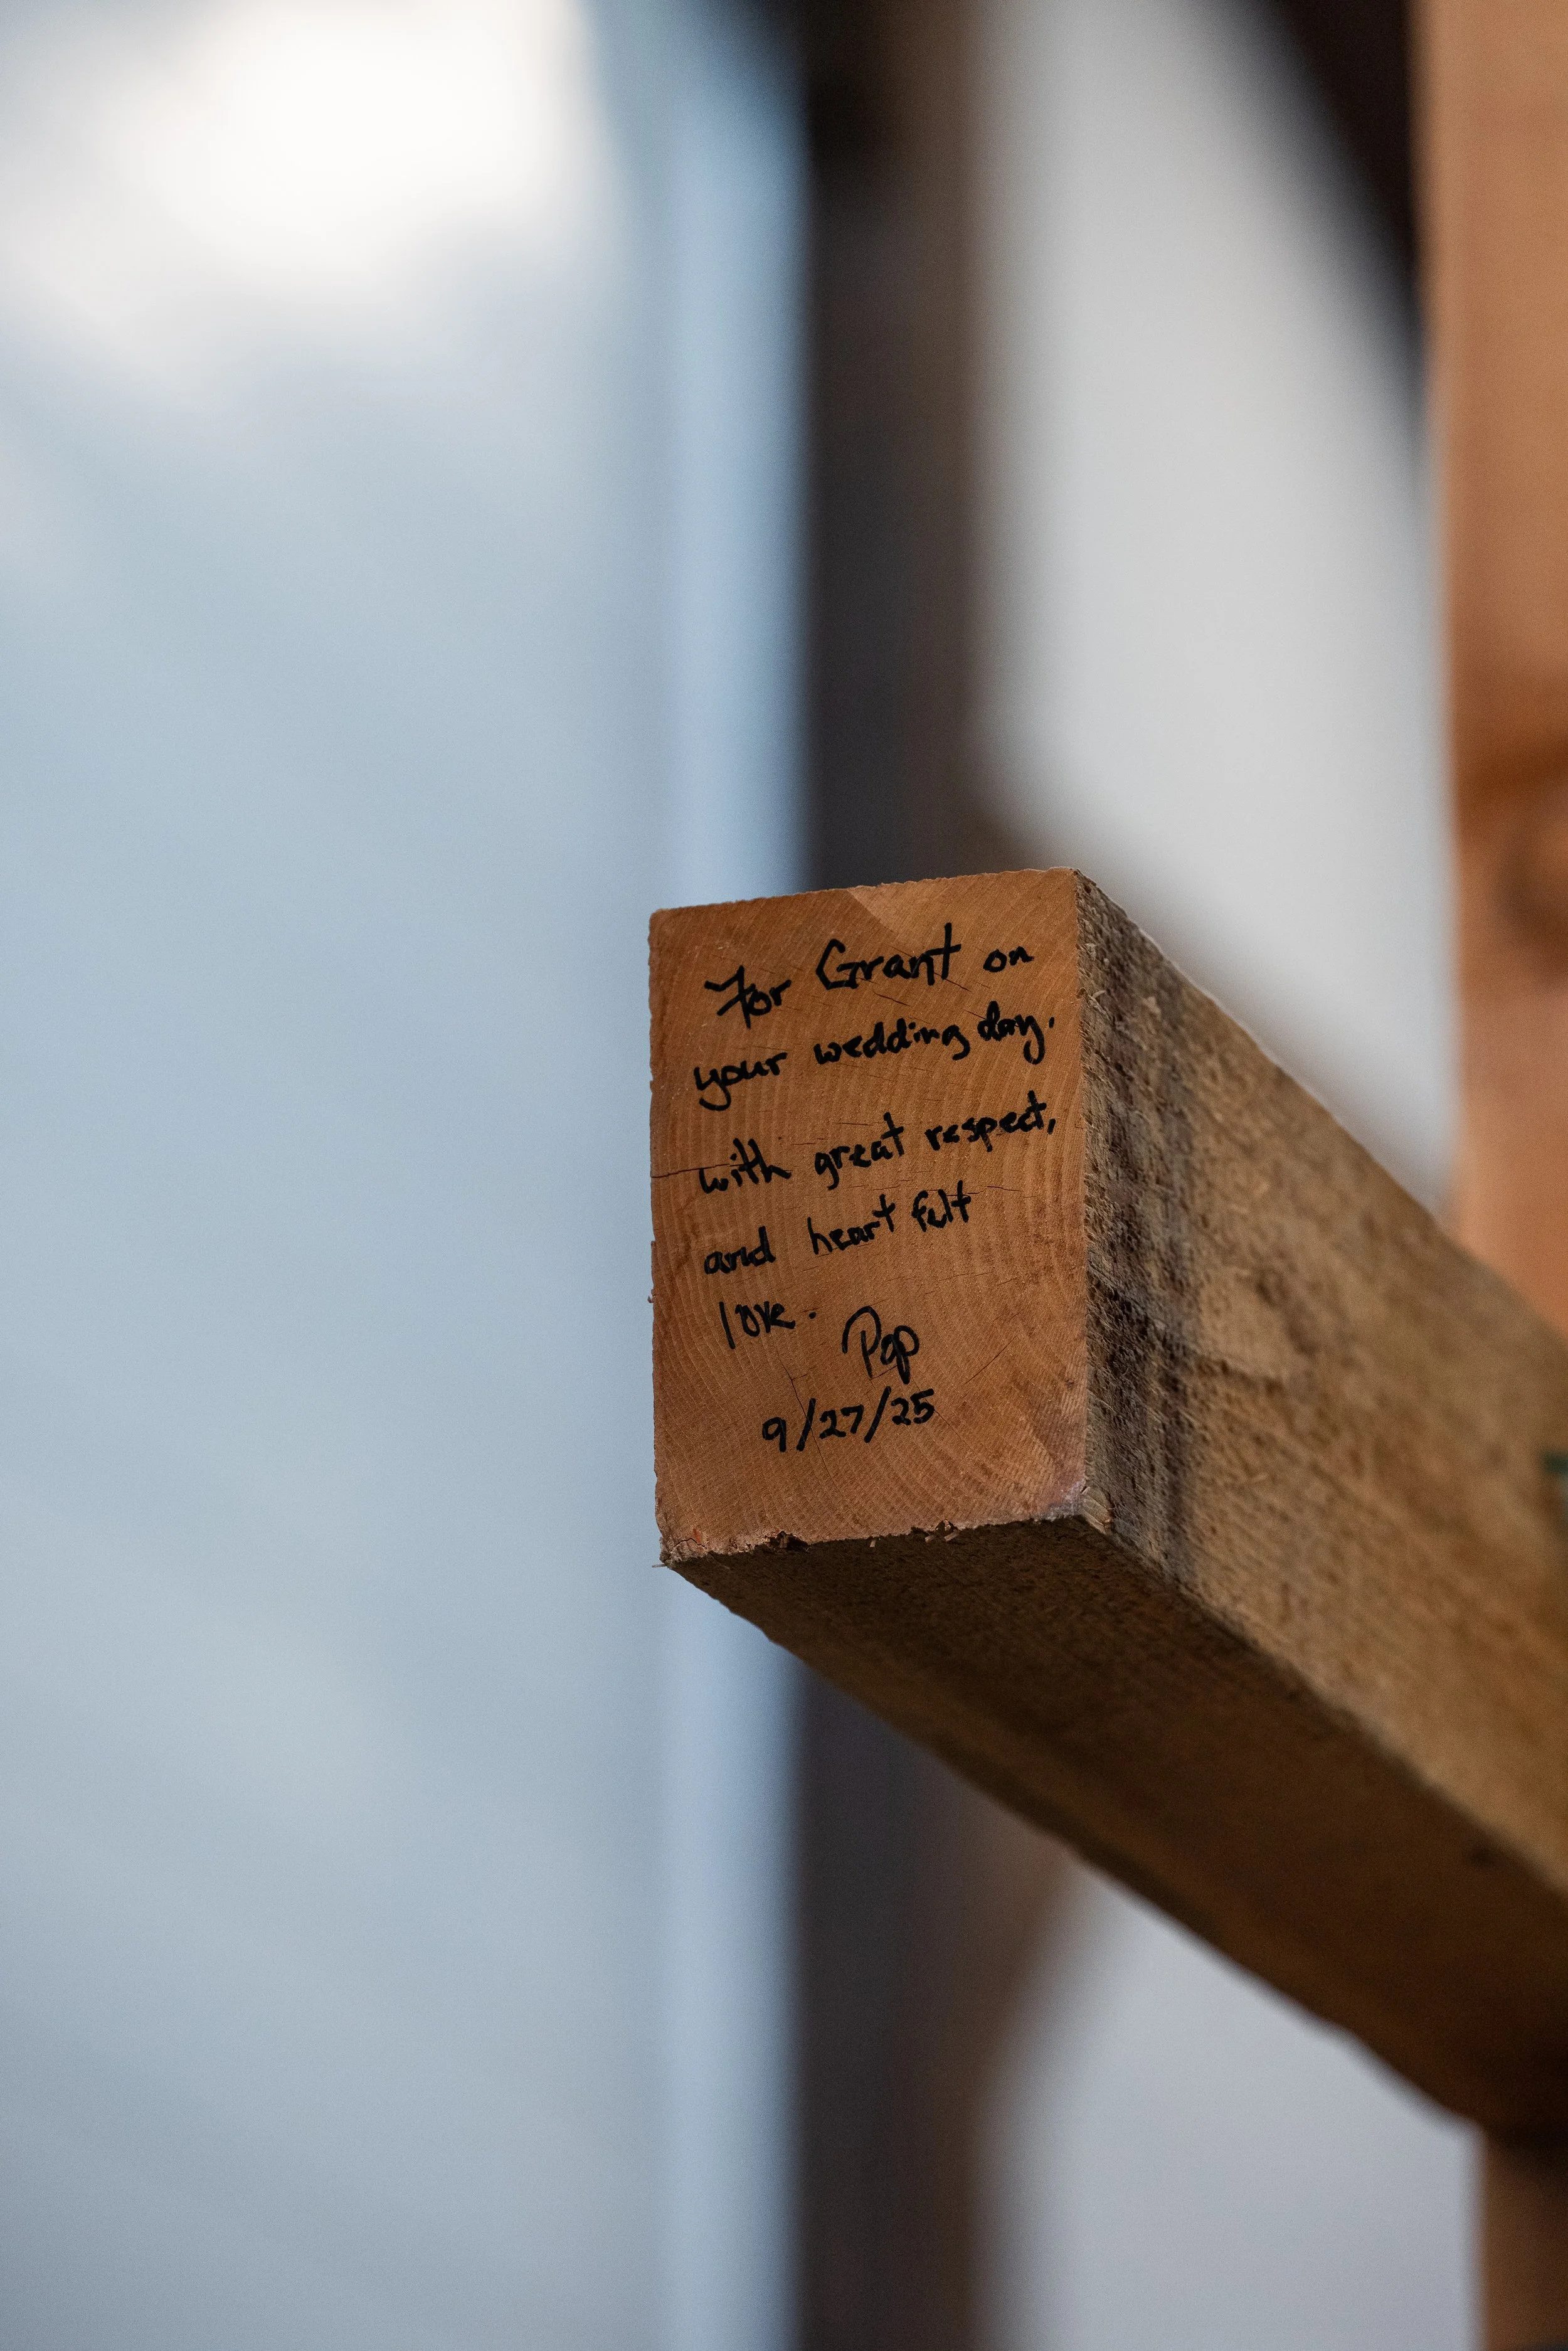 For Grant on
your wedding day.
with great respect,
and heart felt
love. Pop
9/27/25